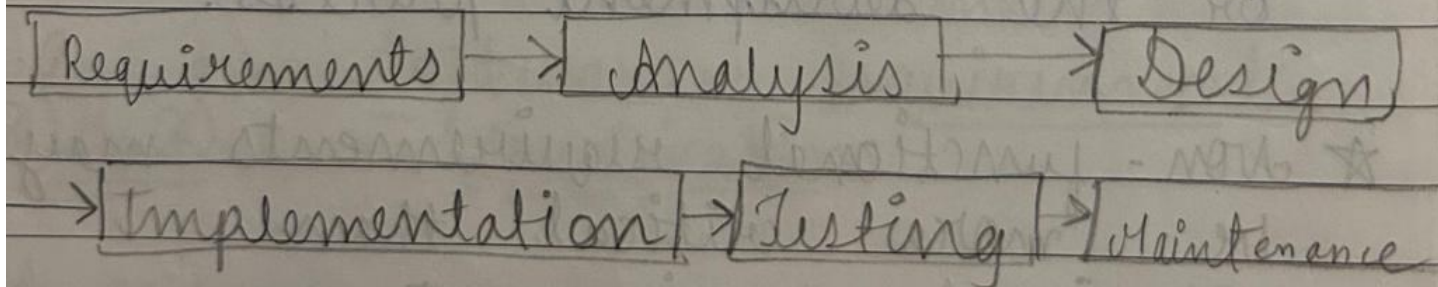 Requirements → Analysis → Design
→ Implementation → Testing → Maintenance